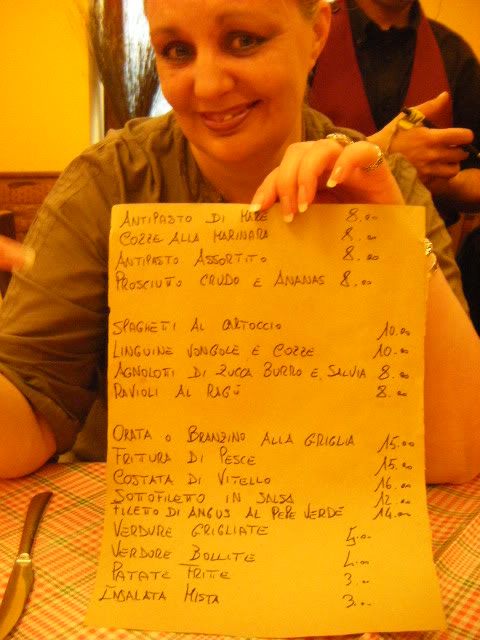 ANTIPASTO DI MARE 8.00
COZZE ALLA MARINARA 8.00
ANTIPASTO ASSORTITO 8.00
PROSCIUTTO CRUDO E ANANAS 8.00
SPAGHETTI AL CARTOCCIO 10.00
LINGUINE VONGOLE E COZZE 10.00
AGNOLOTI DI ZUCCA BURRO E SALVIA 8.00
RAVIOLI AL RAGÙ 8.00
ORATA O BRANZINO ALLA GRIGLIA 15.00
FRITURA DI PESCE 15.00
COSTATA DI VITELLO 16.00
SOTTOFILETO IN SALSA 12.00
FILETO DI ANGUS AL PEPE VERDE 14.00
VERDURE GRIGLIATE 5.00
VERDURE BOLLITE 4.00
PATATE FRITTE 3.00
INSALATA MISTA 3.00